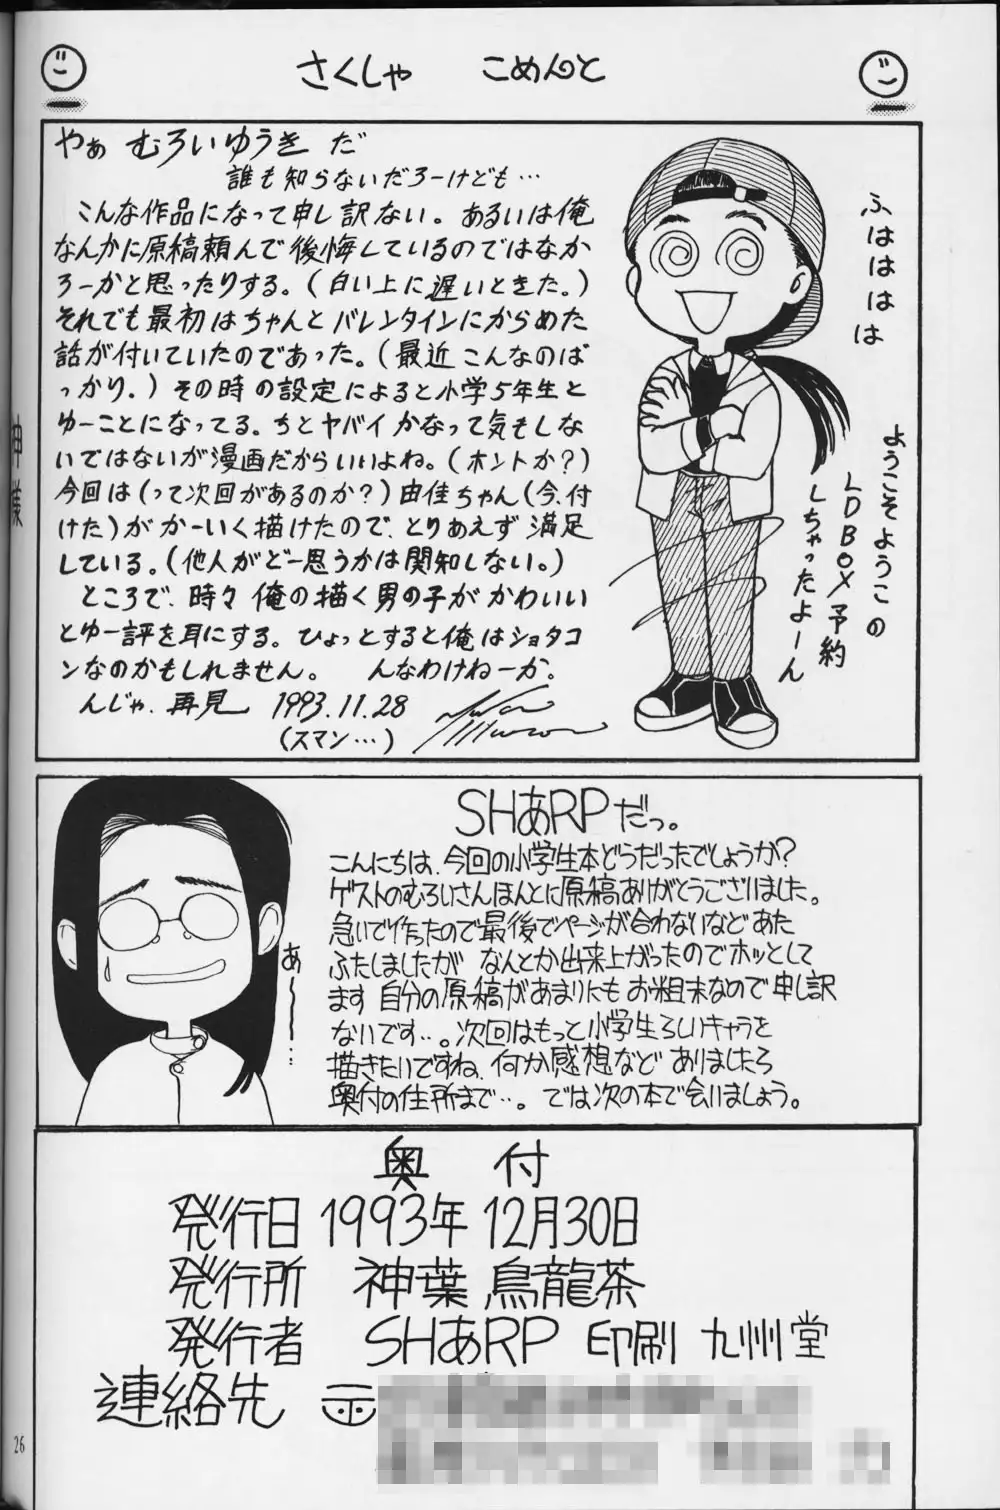 さくしゃ こめんと
やぁ むろいゆうき だ
誰も知らないだろーけども…
こんな作品になって申し訳ない。あるいは俺
なんかに原稿頼んで後悔しているのではなか
ろーかと思ったりする。(白い上に遅いときた。)
それでも最初はちゃんとバレンタインにからめた
話が付いていたのであった。(最近こんなのば
っかり.)その時の設定によると小学5年生と
ゆーことになってる。ちとヤバイかなって気もしな
いではないが漫画だからいいよね。(ホントか?)
今回は(って次回があるのか?)由佳ちゃん(今、付
けた)がかーいく描けたので、とりあえず満足
している。(他人がどー思うかは関知しない。)
ところで、時々俺の描く男の子がかわいい
とゆー評を耳にする。ひょっとすると俺はショタコ
ンなのかもしれません。 んなわけねーか.
んじゃ、再見 1993.11.28
(スマン…)
ふはははは
ようこそようこの
LDBOX予約
しちゃったよーん
SHあRPだっ。
こんにちは、今回の小学生本どうだったでしょうか?
ゲストのむろいさんほんとに原稿ありがとうございました。
急いで作ったので最後でページが合わないなどあた
ふたしましたが なんとか出来上がったのでホッとして
ます 自分の原稿があまりにもお粗末なので申し訳
ないです…。次回はもっと小学生らしいキャラを
描きたいですね、何か感想など ありましたら
奥付の住所まで…。では次の本で会いましょう。
あ〜…
奥付
発行日 1993年 12月30日
発行所 神葉 烏龍茶
発行者 SHあRP 印刷 九州堂
連絡先 〒
26